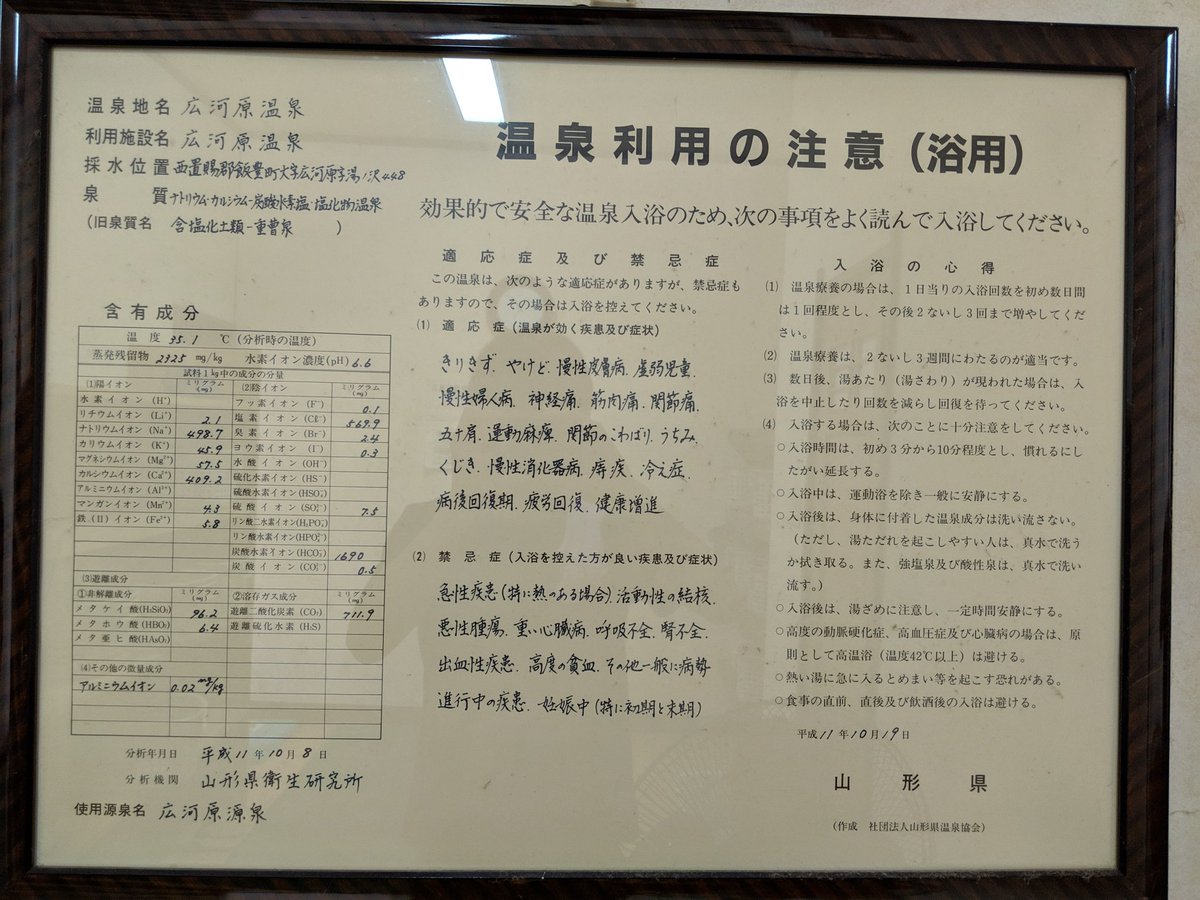 温泉地名 広河原温泉
利用施設名 広河原温泉
採水位置 西置賜郡飯豊町大字広河原字湯ノ沢448
泉質 ナトリウム・カルシウム-炭酸水素塩・塩化物温泉
(旧泉質名 含塩化土類-重曹泉 )
含有成分
温度 35.1 ℃(分析時の温度)
蒸発残留物 2325 mg/kg 水素イオン濃度(pH) 6.6
試料1kg中の成分の分量
(1)陽イオン ミリグラム(mg) (2)陰イオン ミリグラム(mg)
水素イオン(H⁺) フッ素イオン(F⁻) 0.1
リチウムイオン(Li⁺) 2.1 塩素イオン(Cℓ⁻) 569.9
ナトリウムイオン(Na⁺) 498.7 臭素イオン(Br⁻) 2.4
カリウムイオン(K⁺) 45.9 ヨウ素イオン(I⁻) 0.3
マグネシウムイオン(Mg²⁺) 57.5 水酸イオン(OH⁻)
カルシウムイオン(Ca²⁺) 409.2 硫化水素イオン(HS⁻)
アルミニウムイオン(Al³⁺) 硫酸水素イオン(HSO₄⁻)
マンガンイオン(Mn²⁺) 4.3 硫酸イオン(SO₄²⁻) 7.5
鉄(II)イオン(Fe²⁺) 5.8 リン酸二水素イオン(H₂PO₄⁻)
リン酸水素イオン(HPO₄²⁻)
炭酸水素イオン(HCO₃⁻) 1690
炭酸イオン(CO₃²⁻) 0.5
(3)遊離成分
①非解離成分 ミリグラム(mg) ②溶存ガス成分 ミリグラム(mg)
メタケイ酸(H₂SiO₃) 96.2 遊離二酸化炭素(CO₂) 711.9
メタホウ酸(HBO₂) 6.4 遊離硫化水素(H₂S)
メタ亜ヒ酸(HAsO₂)
(4)その他の微量成分
アルミニウムイオン 0.02 mg/kg
分析年月日 平成11年10月8日
分析機関 山形県衛生研究所
使用源泉名 広河原源泉
温泉利用の注意(浴用)
効果的で安全な温泉入浴のため、次の事項をよく読んで入浴してください。
適応症及び禁忌症
この温泉は、次のような適応症がありますが、禁忌症も
ありますので、その場合は入浴を控えてください。
(1) 適応症(温泉が効く疾患及び症状)
きりきず. やけど. 慢性皮膚病. 虚弱児童.
慢性婦人病. 神経痛. 筋肉痛. 関節痛.
五十肩. 運動麻痺. 関節のこわばり. うちみ.
くじき. 慢性消化器病. 痔疾. 冷え症.
病後回復期. 疲労回復. 健康増進
(2) 禁忌症(入浴を控えた方が良い疾患及び症状)
急性疾患(特に熱のある場合). 活動性の結核.
悪性腫瘍. 重い心臓病. 呼吸不全. 腎不全.
出血性疾患. 高度の貧血. その他一般に病勢
進行中の疾患. 妊娠中(特に初期と末期)
入浴の心得
(1) 温泉療養の場合は、1日当りの入浴回数を初め数日間
は1回程度とし、その後2ないし3回まで増やしてくだ
さい。
(2) 温泉療養は、2ないし3週間にわたるのが適当です。
(3) 数日後、湯あたり(湯さわり)が現われた場合は、入
浴を中止したり回数を減らし回復を待ってください。
(4) 入浴する場合は、次のことに十分注意をしてください。
○入浴時間は、初め3分から10分程度とし、慣れるにし
たがい延長する。
○入浴中は、運動浴を除き一般に安静にする。
○入浴後は、身体に付着した温泉成分は洗い流さない。
(ただし、湯ただれを起こしやすい人は、真水で洗う
か拭き取る。また、強塩泉及び酸性泉は、真水で洗い
流す。)
○入浴後は、湯ざめに注意し、一定時間安静にする。
○高度の動脈硬化症、高血圧症及び心臓病の場合は、原
則として高温浴(温度42℃以上)は避ける。
○熱い湯に急に入るとめまい等を起こす恐れがある。
○食事の直前、直後及び飲酒後の入浴は避ける。
平成11年10月19日
山形県
(作成 社団法人山形県温泉協会)